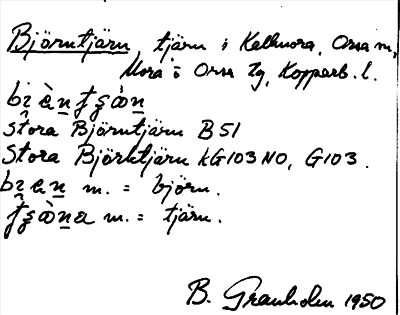 Björntjärn, tjärn i Kallmora, Orsa sn,
Mora o Orsa tg, Kopparb. l.
Stora Björntjärn B51
Stora Björktjärn KG103 NO, G103.
m. = björn.
m. = tjärn.
B. Granholm 1950